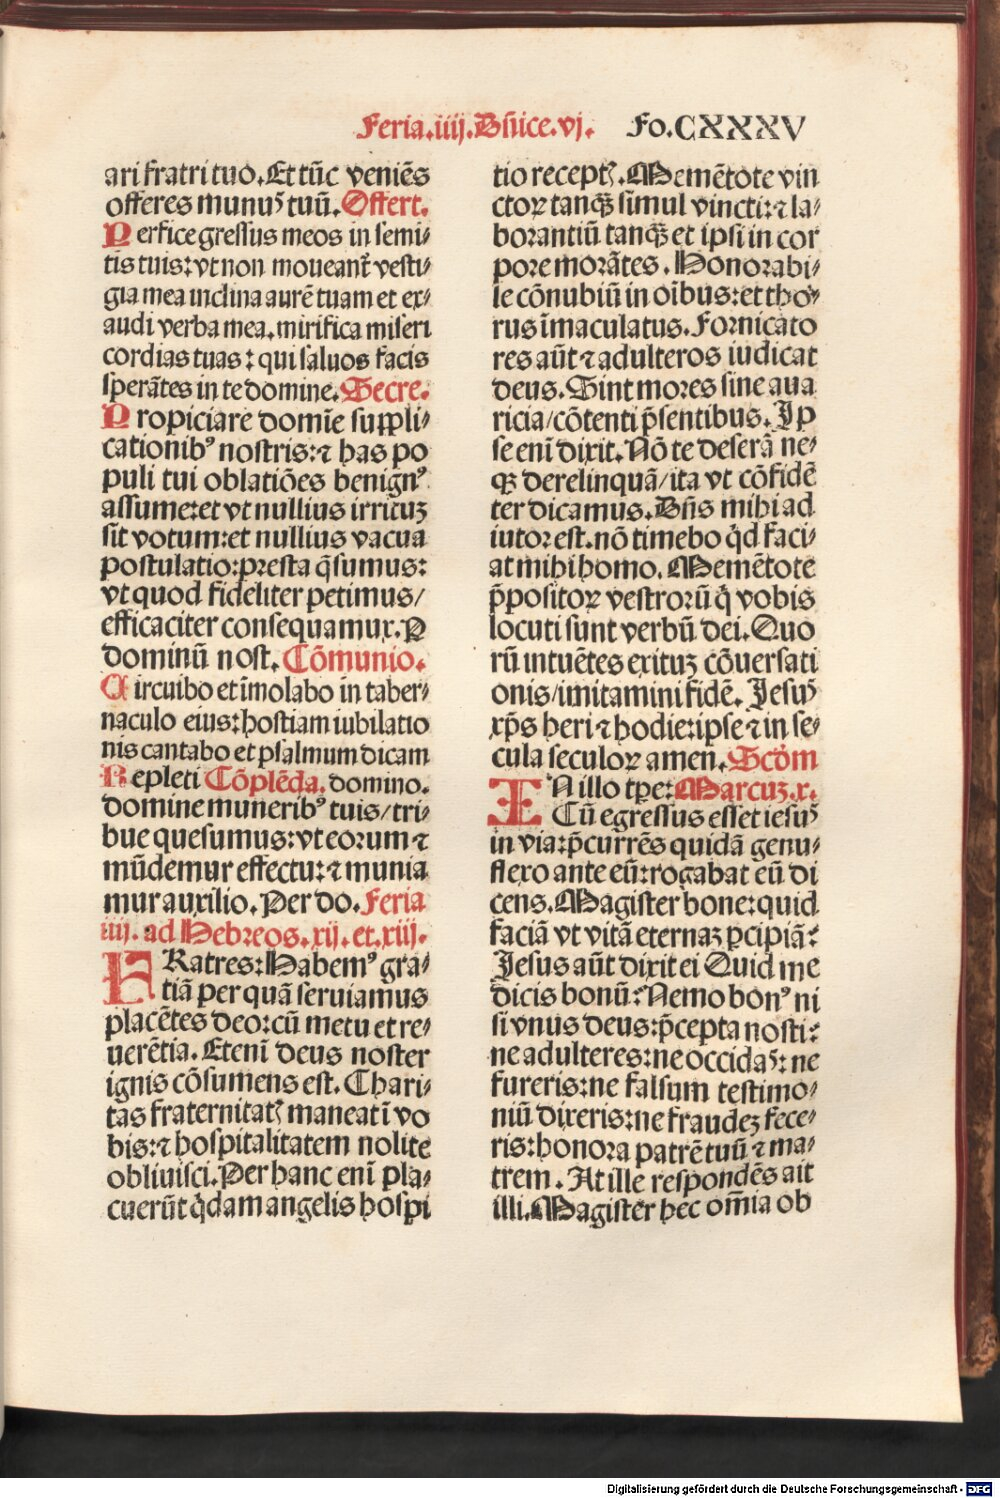 Feria.iiij.Dn̄ice.vj. Fo.CXXXV
ari fratri tuo.Et tūc veniēs
offeres munuꝰ tuū.Offert.
Perfice gressus meos in semi⸗
tis tuis:vt non moueant᷑ vesti⸗
gia mea inclina aurē tuam et ex⸗
audi verba mea.mirifica miseri
cordias tuas: qui saluos facis
sperātes in te domine.Secre.
Propiciare domīe suppli⸗
cationibꝰ nostris:⁊ has po
puli tui oblatiōes benignꝰ
assume:et vt nullius irrituꝫ
sit votum:et nullius vacua
postulatio:presta q̄sumus:
vt quod fideliter petimus/
efficaciter consequamur.P
dominū nost. Cōmunio.
Circuibo et īmolabo in taber⸗
naculo eius:hostiam iubilatio
nis cantabo et psalmum dicam
Repleti Cōplēda. domino.
domine muneribꝰ tuis/tri⸗
bue quesumus:vt eorum ⁊
mūdemur effectu:⁊ munia
mur auxilio.Per do.Feria
iiij. ad Hebreos.xij.et.xiij.
FRatres:Habemꝰ gra⸗
tiā per quā seruiamus
placētes deo:cū metu et re⸗
uerētia.Etenī deus noster
ignis cōsumens est.Chari⸗
tas fraternitatꝭ maneat ī vo
bis:⁊ hospitalitatem nolite
obliuisci.Per hanc enī pla⸗
cuerūt q̇dam angelis hospi
tio receptꝭ.Memētote vin
ctoꝝ tanqꝫ̄ simul vincti:⁊ la⸗
borantiū tanqꝫ̄ et ipsi in cor
pore morātes.Honorabi⸗
le cōnubiū in oībus:et tho⸗
rus īmaculatus.Fornicato
res aūt ⁊ adulteros iudicat
deus.Sint mores sine aua
ricia/cōtenti p̄sentibus.Ip
se enī dixit.Nō te deserā ne⸗
qꝫ derelinquā/ita vt cōfidē
ter dicamus.Dn̄s mihi ad
iutor est.nō timebo q̇d faci⸗
at mihi homo.Memētote
p̄positoꝝ vestrorū q̇ vobis
locuti sunt verbū dei.Quo
rū intuētes exituꝫ cōuersati
onis/imitamini fidē.Jesuꝰ
xp̄s heri ⁊ hodie:ipse ⁊ in se⸗
cula seculoꝝ amen.Scd̄m
IN illo tꝑe:Marcuꝫ.x.
Cū egressus esset iesuꝰ
in via:p̄currēs quidā genu⸗
flexo ante eū:rogabat eū di
cens.Magister bone:quid
faciā vt vitā eternaꝫ ꝑcipiā:
Jesus aūt dixit ei Quid me
dicis bonū:Nemo bonꝰ ni
si vnus deus:p̄cepta nosti:
ne adulteres:ne occidaꝰ:ne
fureris:ne falsum testimo⸗
niū dixeris:ne fraudeꝫ fece⸗
ris:honora patrē tuū ⁊ ma⸗
trem.At ille respondēs ait
illi.Magister hec om̄ia ob
Digitalisierung gefördert durch die Deutsche Forschungsgemeinschaft - DFG